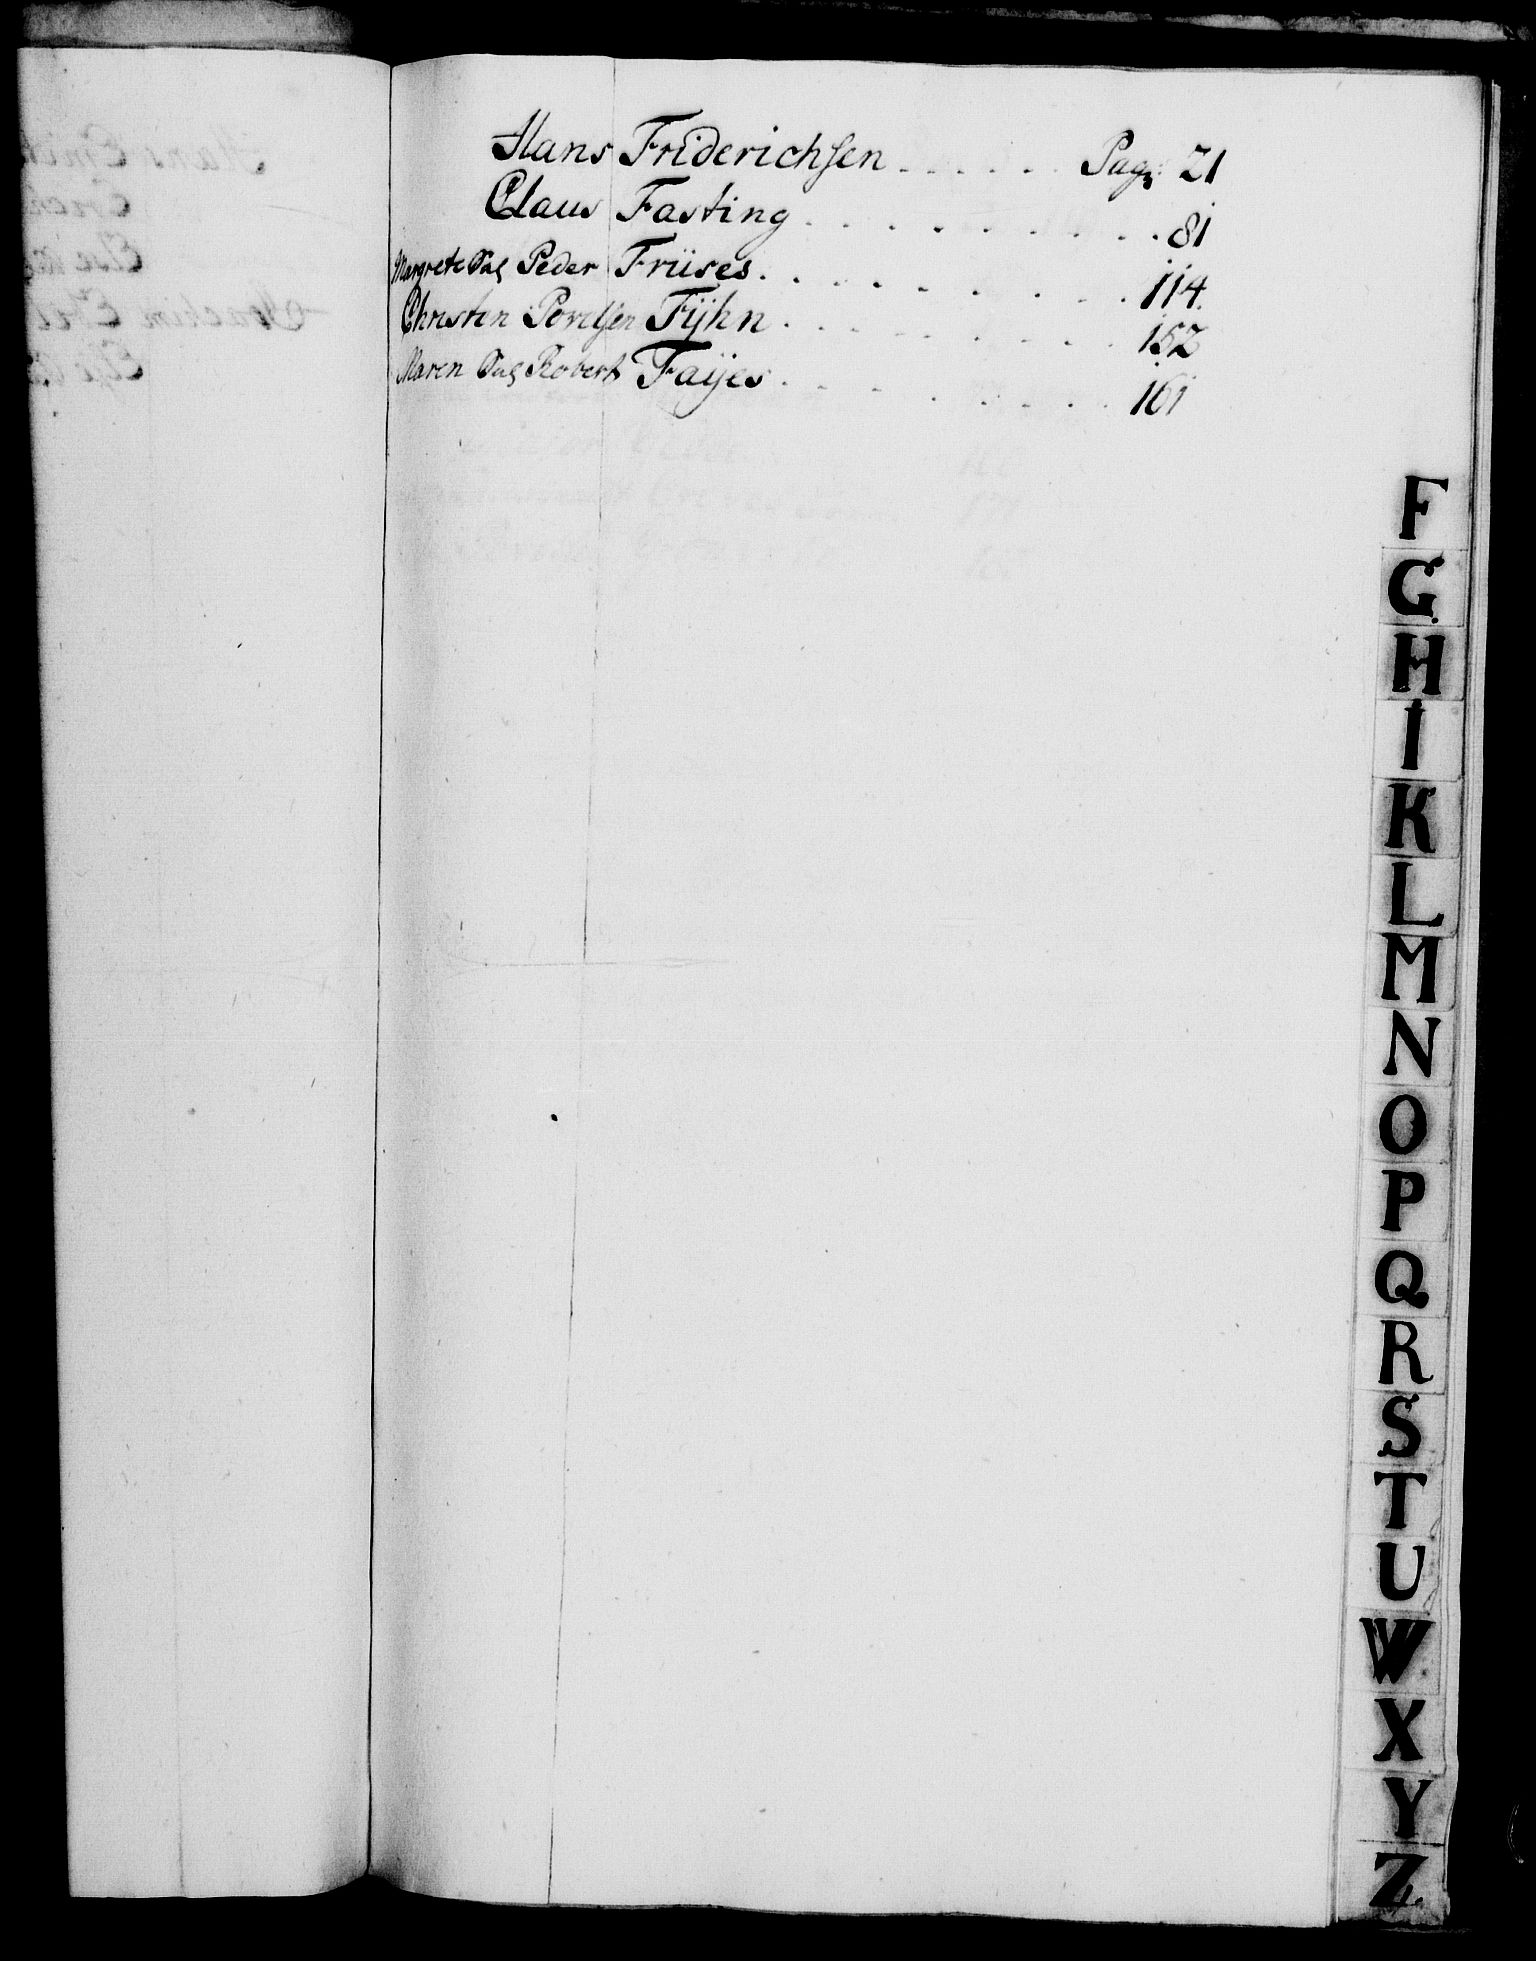 Hans Friderichsen . . . . . . Pag: 21
Claus Fasting . . . . . . . . . 81
Margrete Sal Peder Friises . . . . . . . . . 114.
Christen Povelsen Fÿhn . . . . . . . . 152
Maren Sal Robert Faÿes . . . . . . . . 161
F
G
H
I
K
L
M
N
O
P
Q
R
S
T
U
W
X
Y
Z